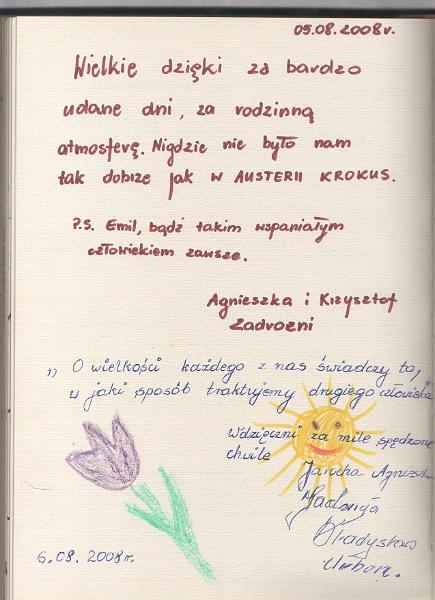 05.08.2008r.
Wielkie dzięki za bardzo
udane dni, za rodzinną
atmosferę. Nigdzie nie było nam
tak dobrze jak w AUSTERII KROKUS.
P.S. Emil, bądź takim wspaniałym
człowiekiem zawsze.
Agnieszka i Krzysztof
Zadrozni
,, O wielkości każdego z nas świadczy to,
w jaki sposób traktujemy drugiego człowieka"
Wdzięczni za mile spędzone
chwile
Jadwiga
Władysław
6.08.2008r.